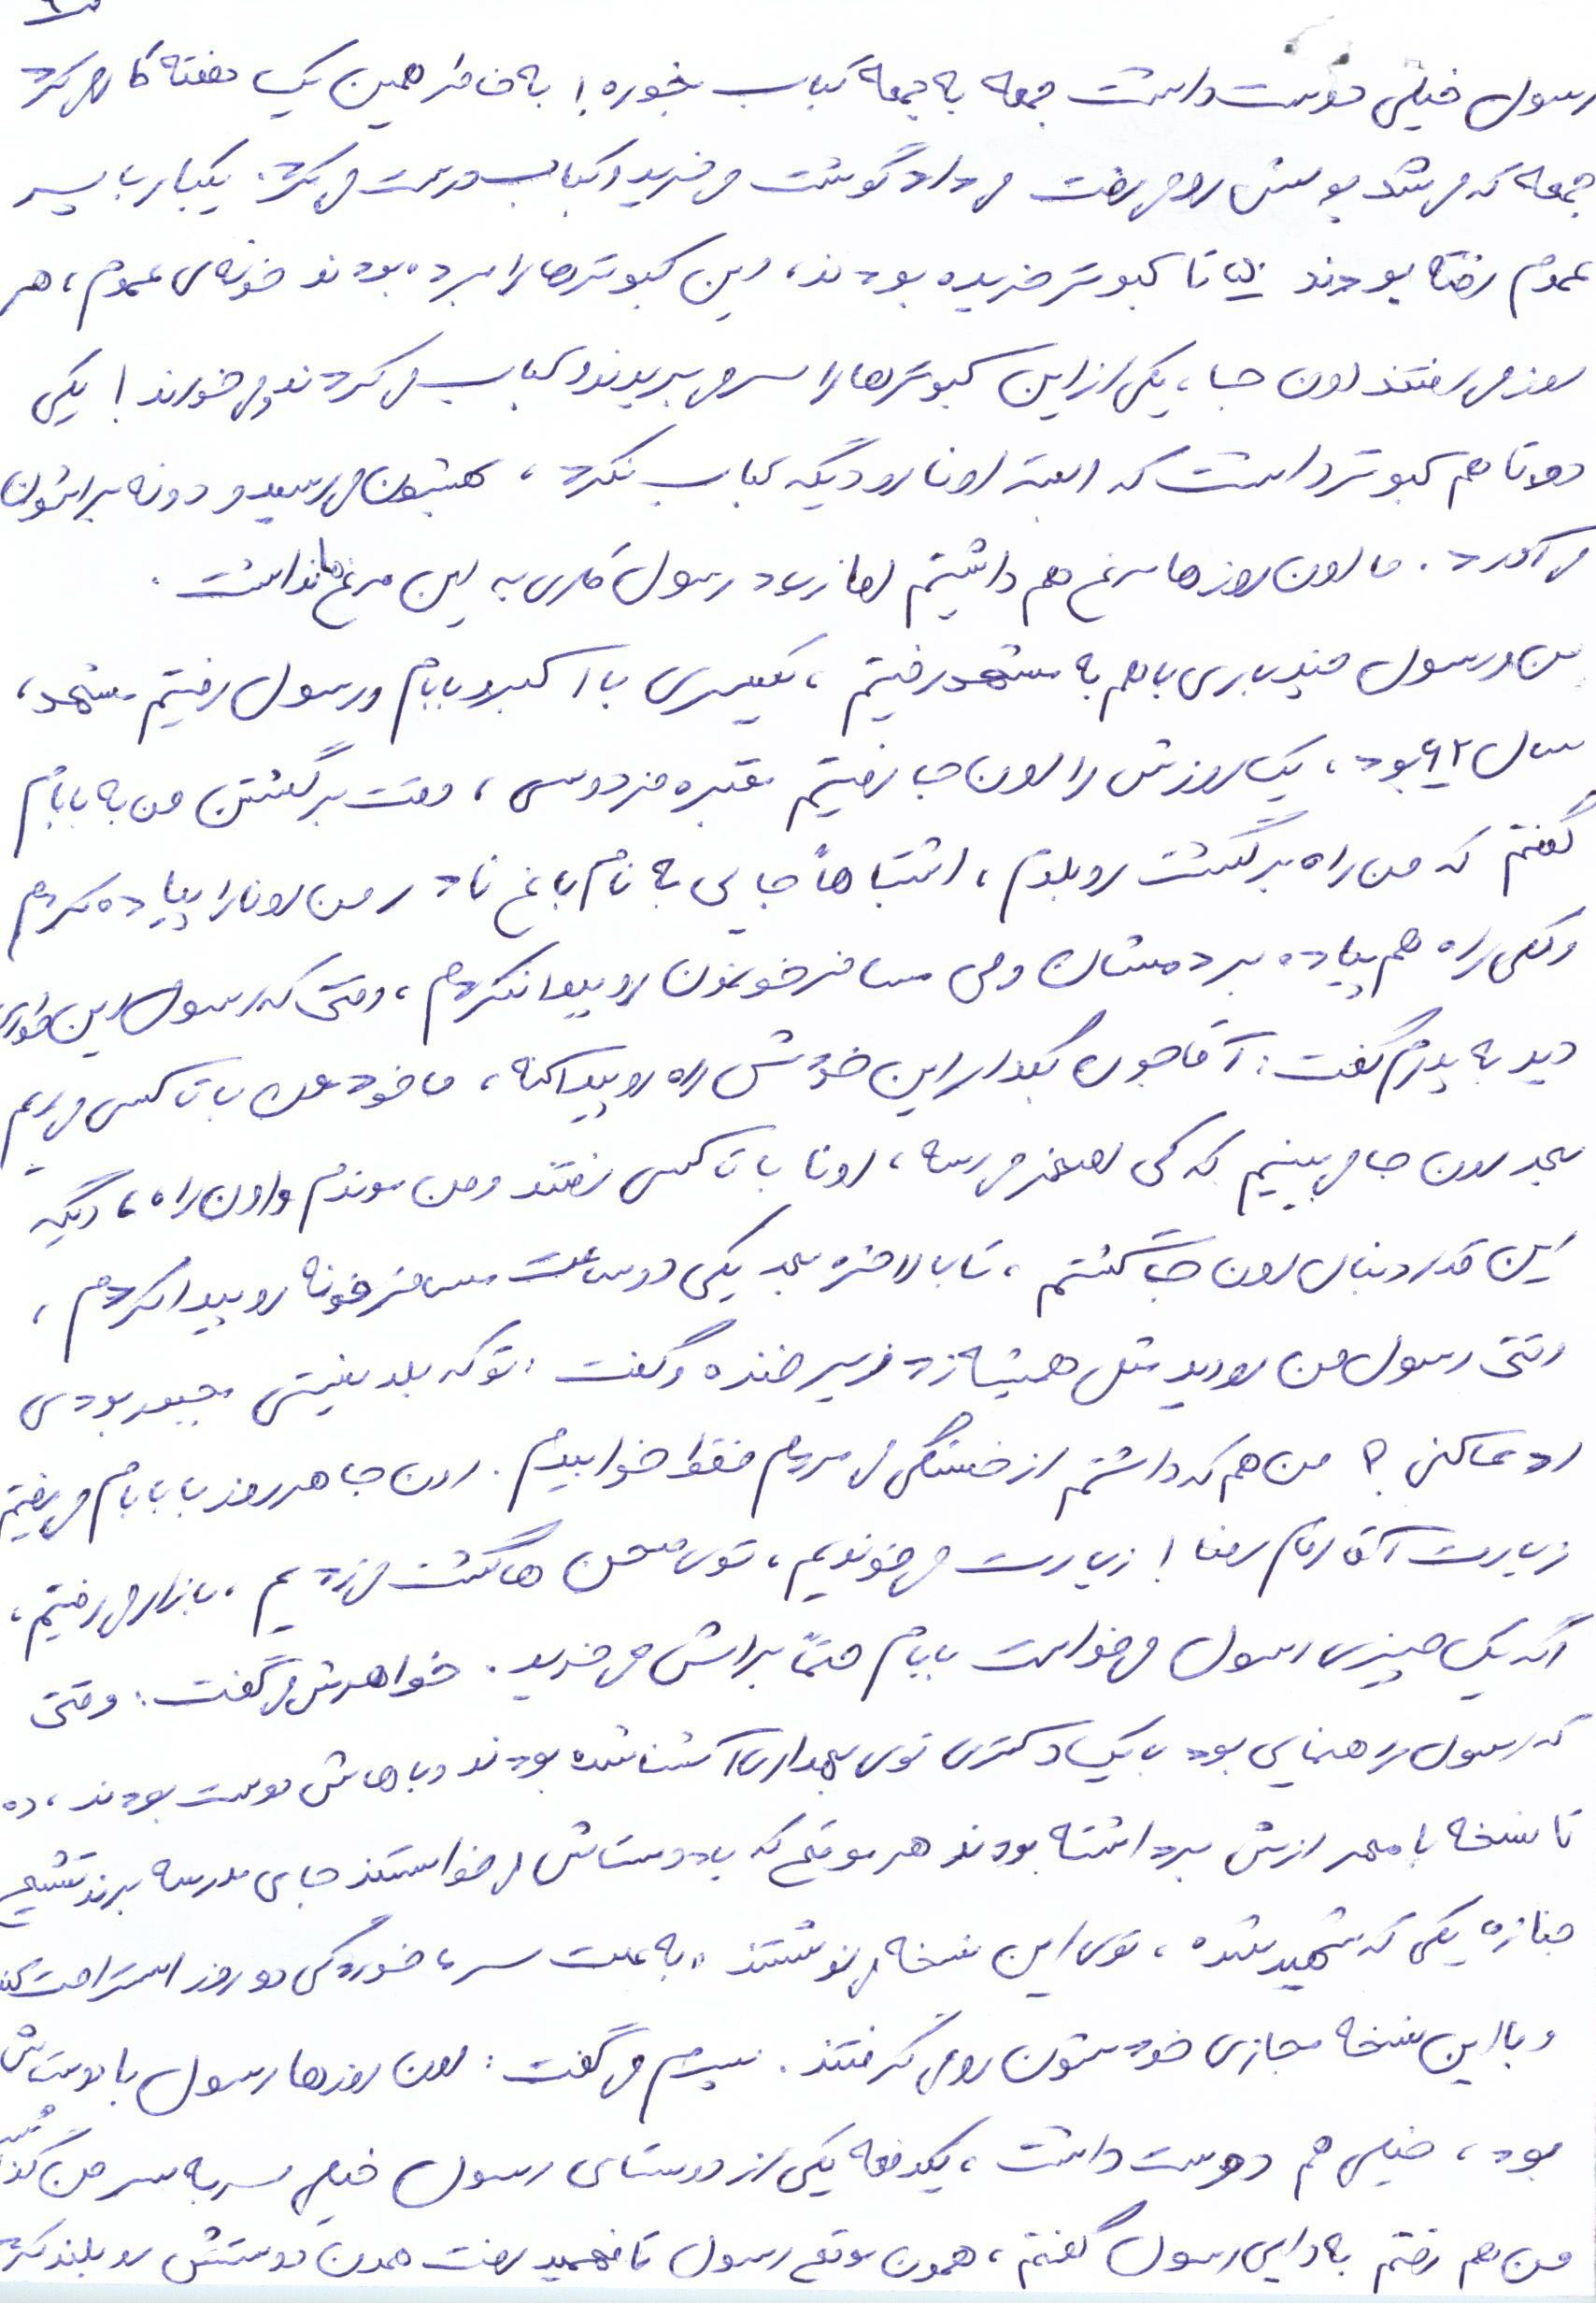 رسول خیلی دوست داشت جمعه به جمعه کباب بخوره! به خاطر همین یک هفته کار می‌کرد
جمعه که می‌شد پولش رو می‌رفت می‌داد گوشت می‌خرید و کباب درست می‌کرد. یکبار با پسر
عموم رفته بودند تا کبوتر خریده بودند، این کبوترها را برده بودند خونه‌ی عموم، هر
روز می‌رفتند اون جا، یکی از این کبوترها را سر می‌بریدند و کباب می‌کردند و می‌خوردند! یکی
دوتا هم کبوتر داشت که البته اونا رو دیگه کباب نکرد، بهشون می‌رسید و دونه براشون
می‌آورد. ما اون روزها مرغ هم داشتیم اما زیاد رسول کاری به این مرغ‌ها نداشت.
من و رسول چند باری با هم به مشهد رفتیم، یکسری با اکبر و بابام و رسول رفتیم مشهد،
سال ۶۲ بود، یک روزش را اون جا رفتیم مقبره فردوسی، وقت برگشتن من به بابام
گفتم که من راه برگشت رو بلدم، اشتباهاً جایی به نام باغ نادر من اونا را پیاده کردم
و کلی راه هم پیاده بردمشان ولی مسافرخونمون رو پیدا نکردم، وقتی که رسول این طوری
دید به پدرم گفت: آقاجون بگذار این خودش راه رو پیدا کنه، ما خودمون با تاکسی می‌ریم
بعد اون جا می‌بینیم که کی می‌رسه، اونا با تاکسی رفتند و من موندم و اون راه، دیگه
این قدر دنبال اون جا گشتم، تا بالاخره بعد یکی دو ساعت مسافرخونه رو پیدا کردم،
وقتی رسول من رو دید مثل همیشه زد زیر خنده و گفت: تو که بلد نیستی مجبور بودی
ادعا کنی؟ من هم که داشتم از خستگی می‌مردم فقط خوابیدم. اون جا هر روز با بابام می‌رفتیم
زیارت آقا امام رضا! زیارت می‌خوندیم، توی صحن ها گشت می‌زدیم، بازار می‌رفتیم،
اگه یک چیزی رسول می‌خواست بابام حتماً براش می‌خرید. خواهرش می‌گفت: وقتی
که رسول راهنمایی بود با یک دکتری توی بهداری آشنا شده بودند و باهاش دوست بودند، ده
تا نسخه با مهر ازش برداشته بودند هر موقع که با دوستاش می‌خواستند جای مدرسه برند تشییع
جنازه یکی که شهید شده، توی این نسخه می‌نوشتند، به علت سرما خوردگی دو روز استراحت کند
و با این نسخه مجازی خودشون رو می‌گرفتند. پسرم می‌گفت: اون روزها رسول با دوستاش
بود، خیلی هم دوست داشت، یکدفعه یکی از دوستای رسول خیلی سر به سر من
من هم رفتم به دایی رسول گفتم، همون موقع رسول تا فهمید رفت همون دوستش رو بلند کرد